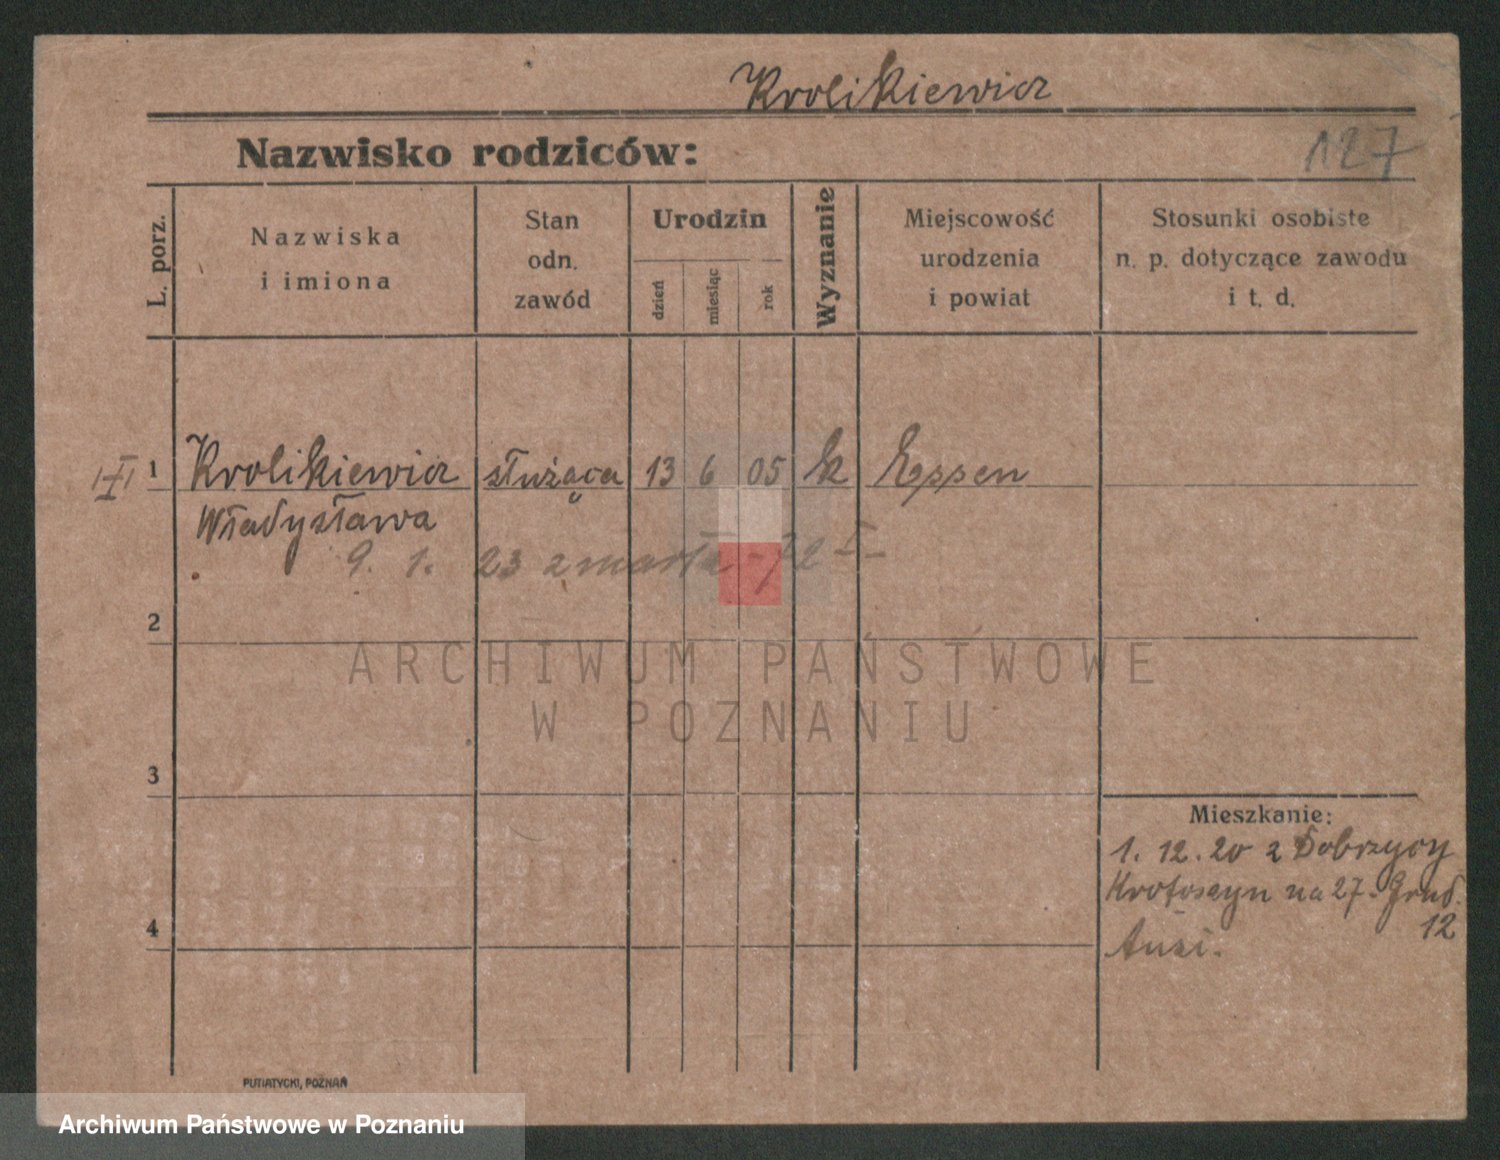 Krolikiewicz
Nazwisko rodziców:
127
L. porz.
Nazwiska
i imiona
Stan
odn.
zawód
Urodzin
dzień
miesiąc
rok
Wyznanie
Miejscowość
urodzenia
i powiat
Stosunki osobiste
n. p. dotyczące zawodu
i t. d.
1 Krolikiewicz służąca 13 6 05 k Eppen
Władysława
9. 1. 23 zmarła -72 I
2
ARCHIWUM PAŃSTWOWE
W POZNANIU
3
Mieszkanie:
1. 12. 20 z Dobrzycy
Krotoszyn na 27. Grud.
12
4
PUTIATYCKI, POZNAŃ
Archiwum Państwowe w Poznaniu